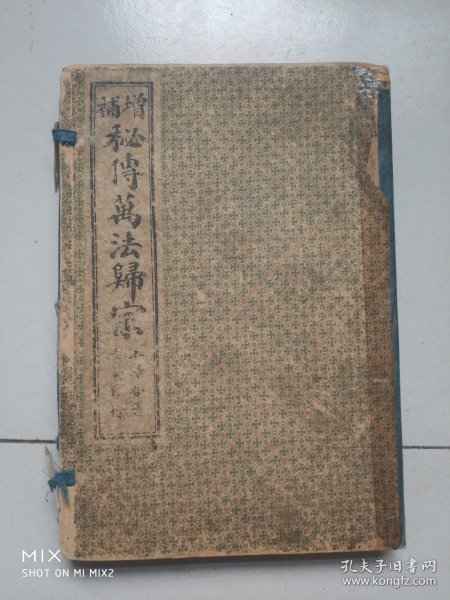 增補
秘傳萬法歸宗
上海
MIX
SHOT ON MI MIX2
孔夫子旧书网
www.kongfz.com